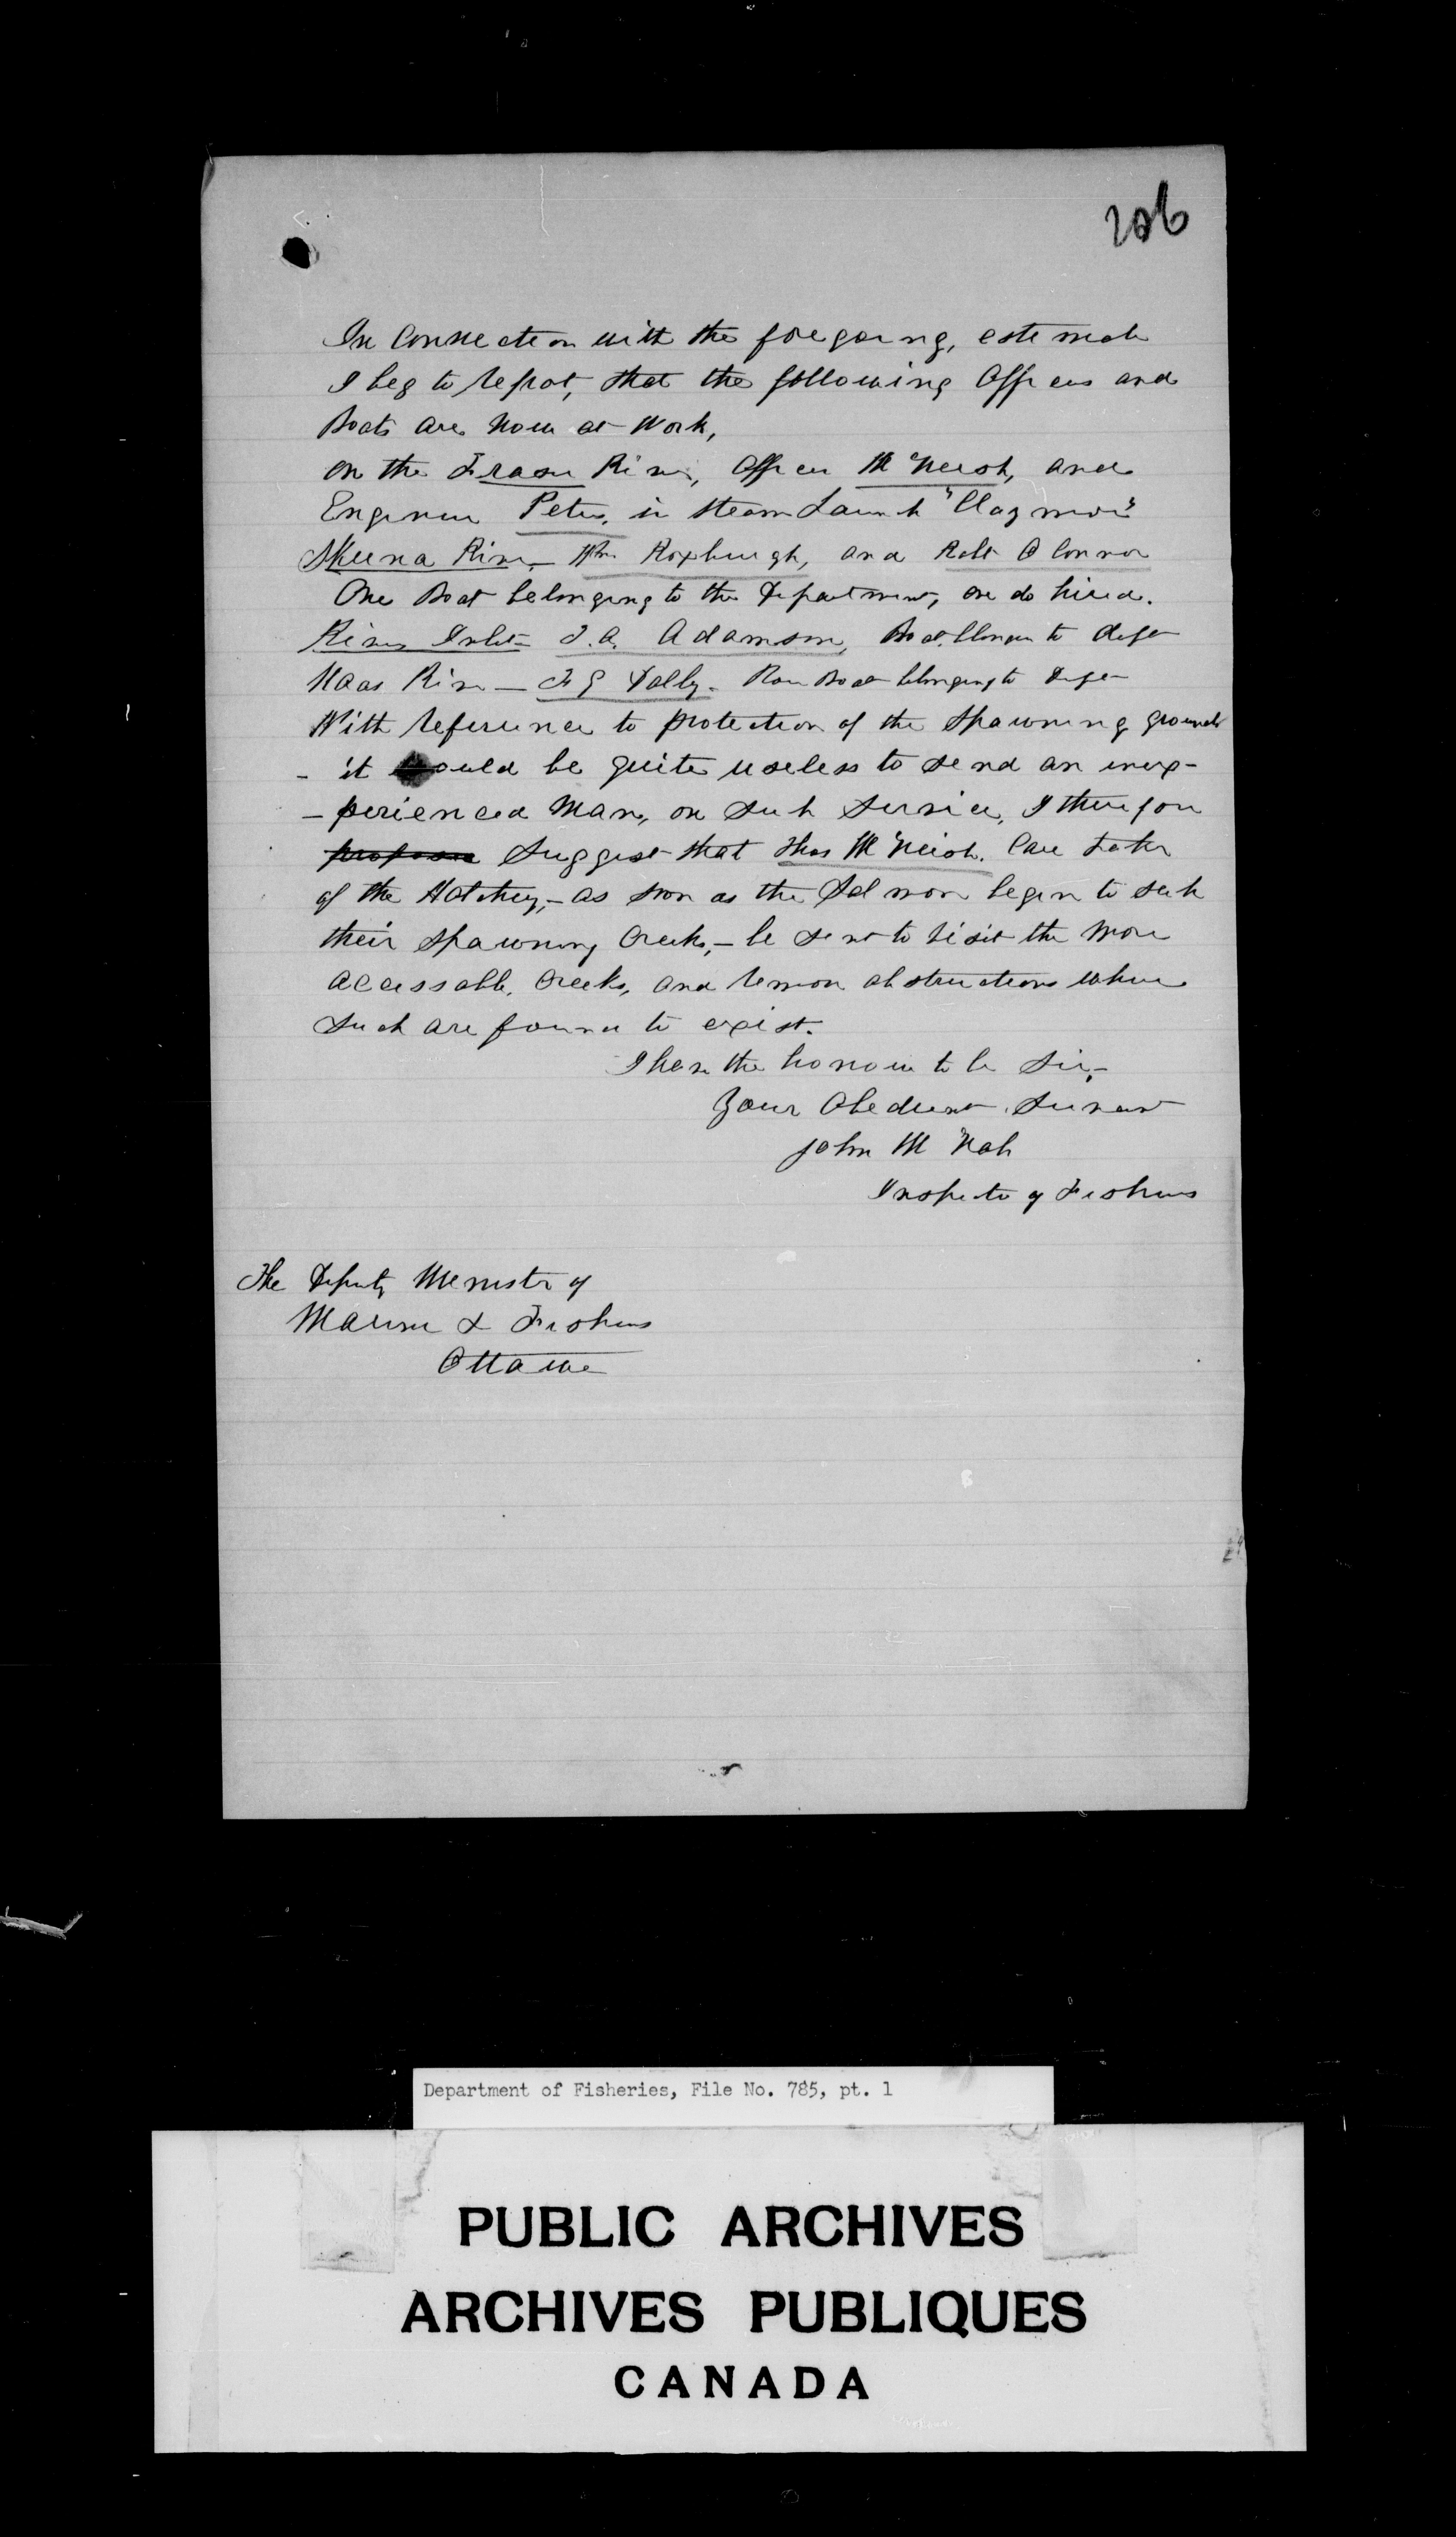 206
In Connection with the foregoing, estimate
I beg to report, that the following Officers and
Boats are now at Work,
on the Fraser River, Officer McNeish, and
Engineer Peter, in Steam Launch "Claymore"
Skeena River - Wm Roxburgh, and Robt O Connor
One Boat belonging to the Department, one do hired.
Rivers Inlet - J. A. Adamson, Boat belongin to dept
Naas River - Dally - Row Boat belonging to Dept
With reference to protection of the spawning grounds
- it would be quite useless to send an inex-
- perienced Man, on such Service, I therefore
propose suggest that Thos McNeish. Care taker
of the Hatchery, - as soon as the Salmon begin to seek
their spawning Creeks, - be sent to visit the more
accessable, Creeks, and remove obstructions where
such are found to exist.
I have the honour to be Sir,
Your Obedient Servant
John McNab
Inspector of Fisheries
The Deputy Minister of
Marine & Fisheries
Ottawa
Department of Fisheries, File No. 785, pt. 1
PUBLIC ARCHIVES
ARCHIVES PUBLIQUES
CANADA